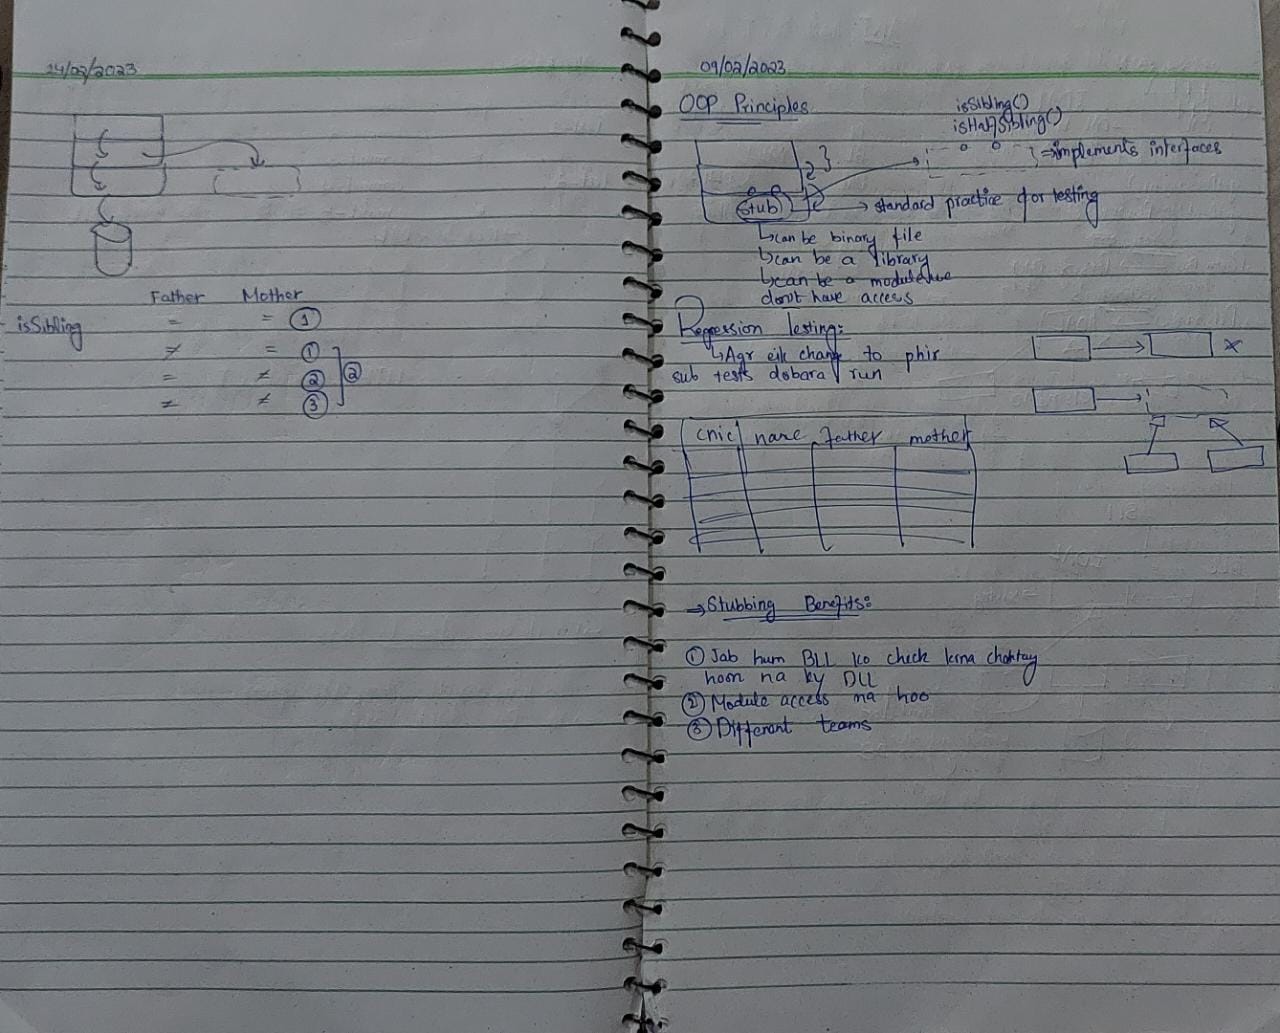 24/02/2023
Father Mother
isSibling = = 1
≠ = 1
= ≠ 2
≠ ≠ 3
2
09/02/2023
OOP Principles
isSibling()
isHalfSibling()
→ implements interfaces
stub → standard practice for testing
↳ can be binary file
↳ can be a library
↳ can be a module we
don't have access
Regression Testing:
↳ Agr eik change to phir
sub tests dobara run
cnic name father mother
→ Stubbing Benefits:
① Jab hum BLL ko check krna chahtay
hoon na ky DLL
② Module access na hoo
③ Different teams